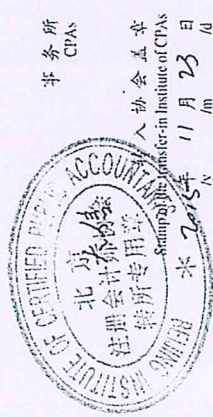 事务所
CPAs
入协会盖章
Stamp of the transfer-in Institute of CPAs
2015年 11月 23日
/y /m /d
BEIJING INSTITUTE OF CERTIFIED PUBLIC ACCOUNTANTS
北京
注册会计师协会
转所专用章